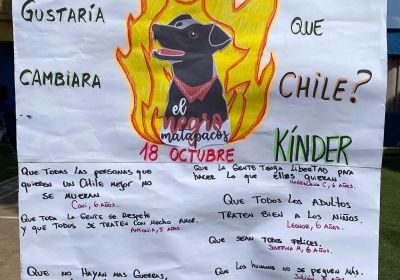 GUSTARÍA QUE
CAMBIARA CHILE?
el
negro
matapacos
18 OCTUBRE
KÍNDER
QUE TODAS LAS PERSONAS QUE
QUIEREN UN CHILE MEJOR NO
SE MUERAN
CONI, 6 AÑOS.
QUE TODA LA GENTE SE RESPETE
Y QUE TODOS SE TRATEN CON MUCHO AMOR.
ANTONIA, 5 AÑOS.
QUE NO HAYAN MAS GUERRAS,
QUE LA GENTE TENGA LIBERTAD PARA
HACER LO QUE ELLOS QUIERAN
MAGDALENA C, 6 AÑOS.
QUE TODOS LOS ADULTOS
TRATEN BIEN A LOS NIÑOS.
LEONOR, 6 AÑOS.
QUE SEAN TODOS FELICES.
JOSEFINA M, 6 AÑOS.
QUE LOS HUMANOS NO SE PEGUEN MÁS.